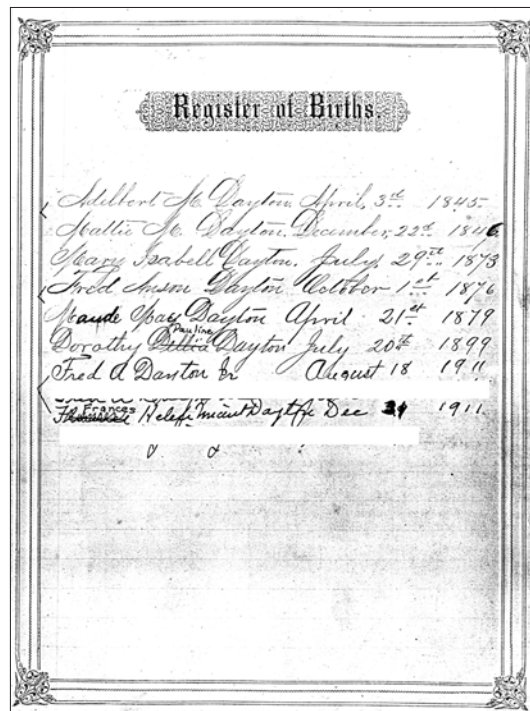 Register of Births.
Adelbert M. Dayton. April, 3rd. 1845
Hattie M. Dayton. December, 22d. 1846
Mary Isabell Dayton. July, 29th. 1873
Fred Anson Dayton October 1st 1876
Maude May Dayton April 21st 1879
Pauline
Dorothy Dayton July 20th 1899
Fred A Dayton Jr August 18 1911
Frances
Dayton Dec 1911